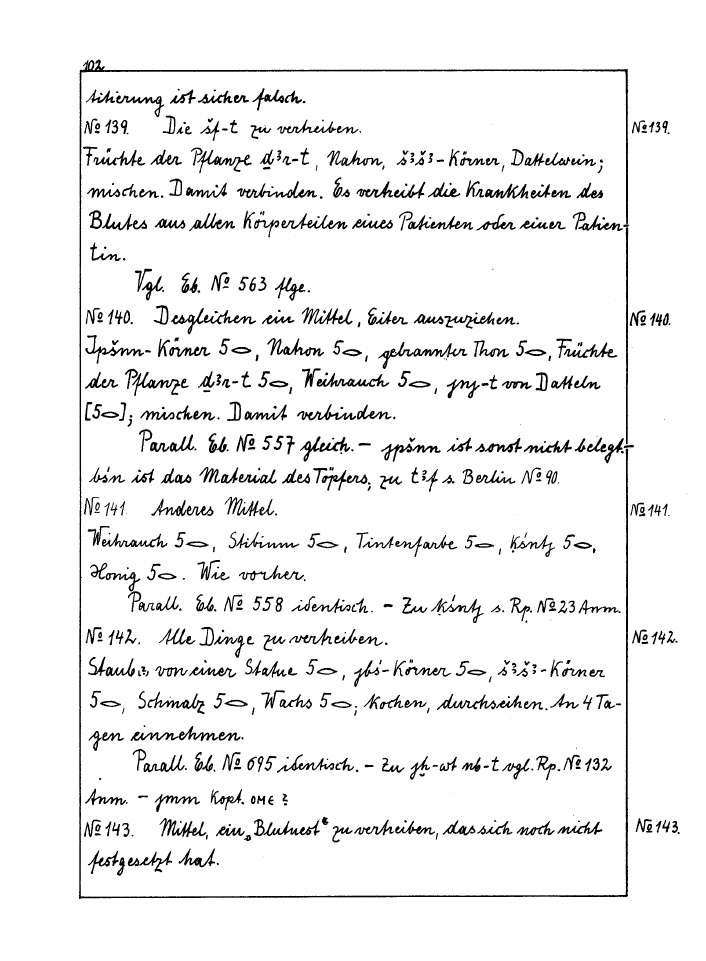 102
titierung ist sicher falsch.
№ 139. Die šf-t zu vertreiben. № 139.
Früchte der Pflanze ḏꜣr-t, Nahon, šꜣšꜣ-Körner, Dattelwein;
mischen. Damit verbinden. Es vertreibt die Krankheiten des
Blutes aus allen Körperteilen eines Patienten oder einer Patien-
tin.
Vgl. Eb. № 563 flge.
№ 140. Desgleichen ein Mittel, Eiter auszuziehen. № 140.
Jpšnn-Körner 5⬭, Nahon 5⬭, gebrannter Thon 5⬭, Früchte
der Pflanze ḏꜣr-t 5⬭, Weihrauch 5⬭, jnj-t von Datteln
[5⬭]; mischen. Damit verbinden.
Parall. Eb. № 557 gleich. – jpšnn ist sonst nicht belegt. –
bśn ist das Material des Töpfers; zu tꜣf s. Berlin № 90.
№ 141. Anderes Mittel. № 141.
Weihrauch 5⬭, Stibium 5⬭, Tintenfarbe 5⬭, ḳśntj 5⬭,
Honig 5⬭. Wie vorher.
Parall. Eb. № 558 identisch. – Zu ḳśntj s. Rp. № 23 Anm.
№ 142. Alle Dinge zu vertreiben. № 142.
Staub(?) von einer Statue 5⬭, jbś-Körner 5⬭, šꜣšꜣ-Körner
5⬭, Schmalz 5⬭, Wachs 5⬭; kochen, durchseihen. An 4 Ta-
gen einnehmen.
Parall. Eb. № 695 identisch. – Zu jḫ-wt nb-t vgl. Rp. № 132
Anm. – jmm Kopt. ⲟⲙⲉ ?
№ 143. Mittel, ein „Blutnest“ zu vertreiben, das sich noch nicht № 143.
festgesetzt hat.